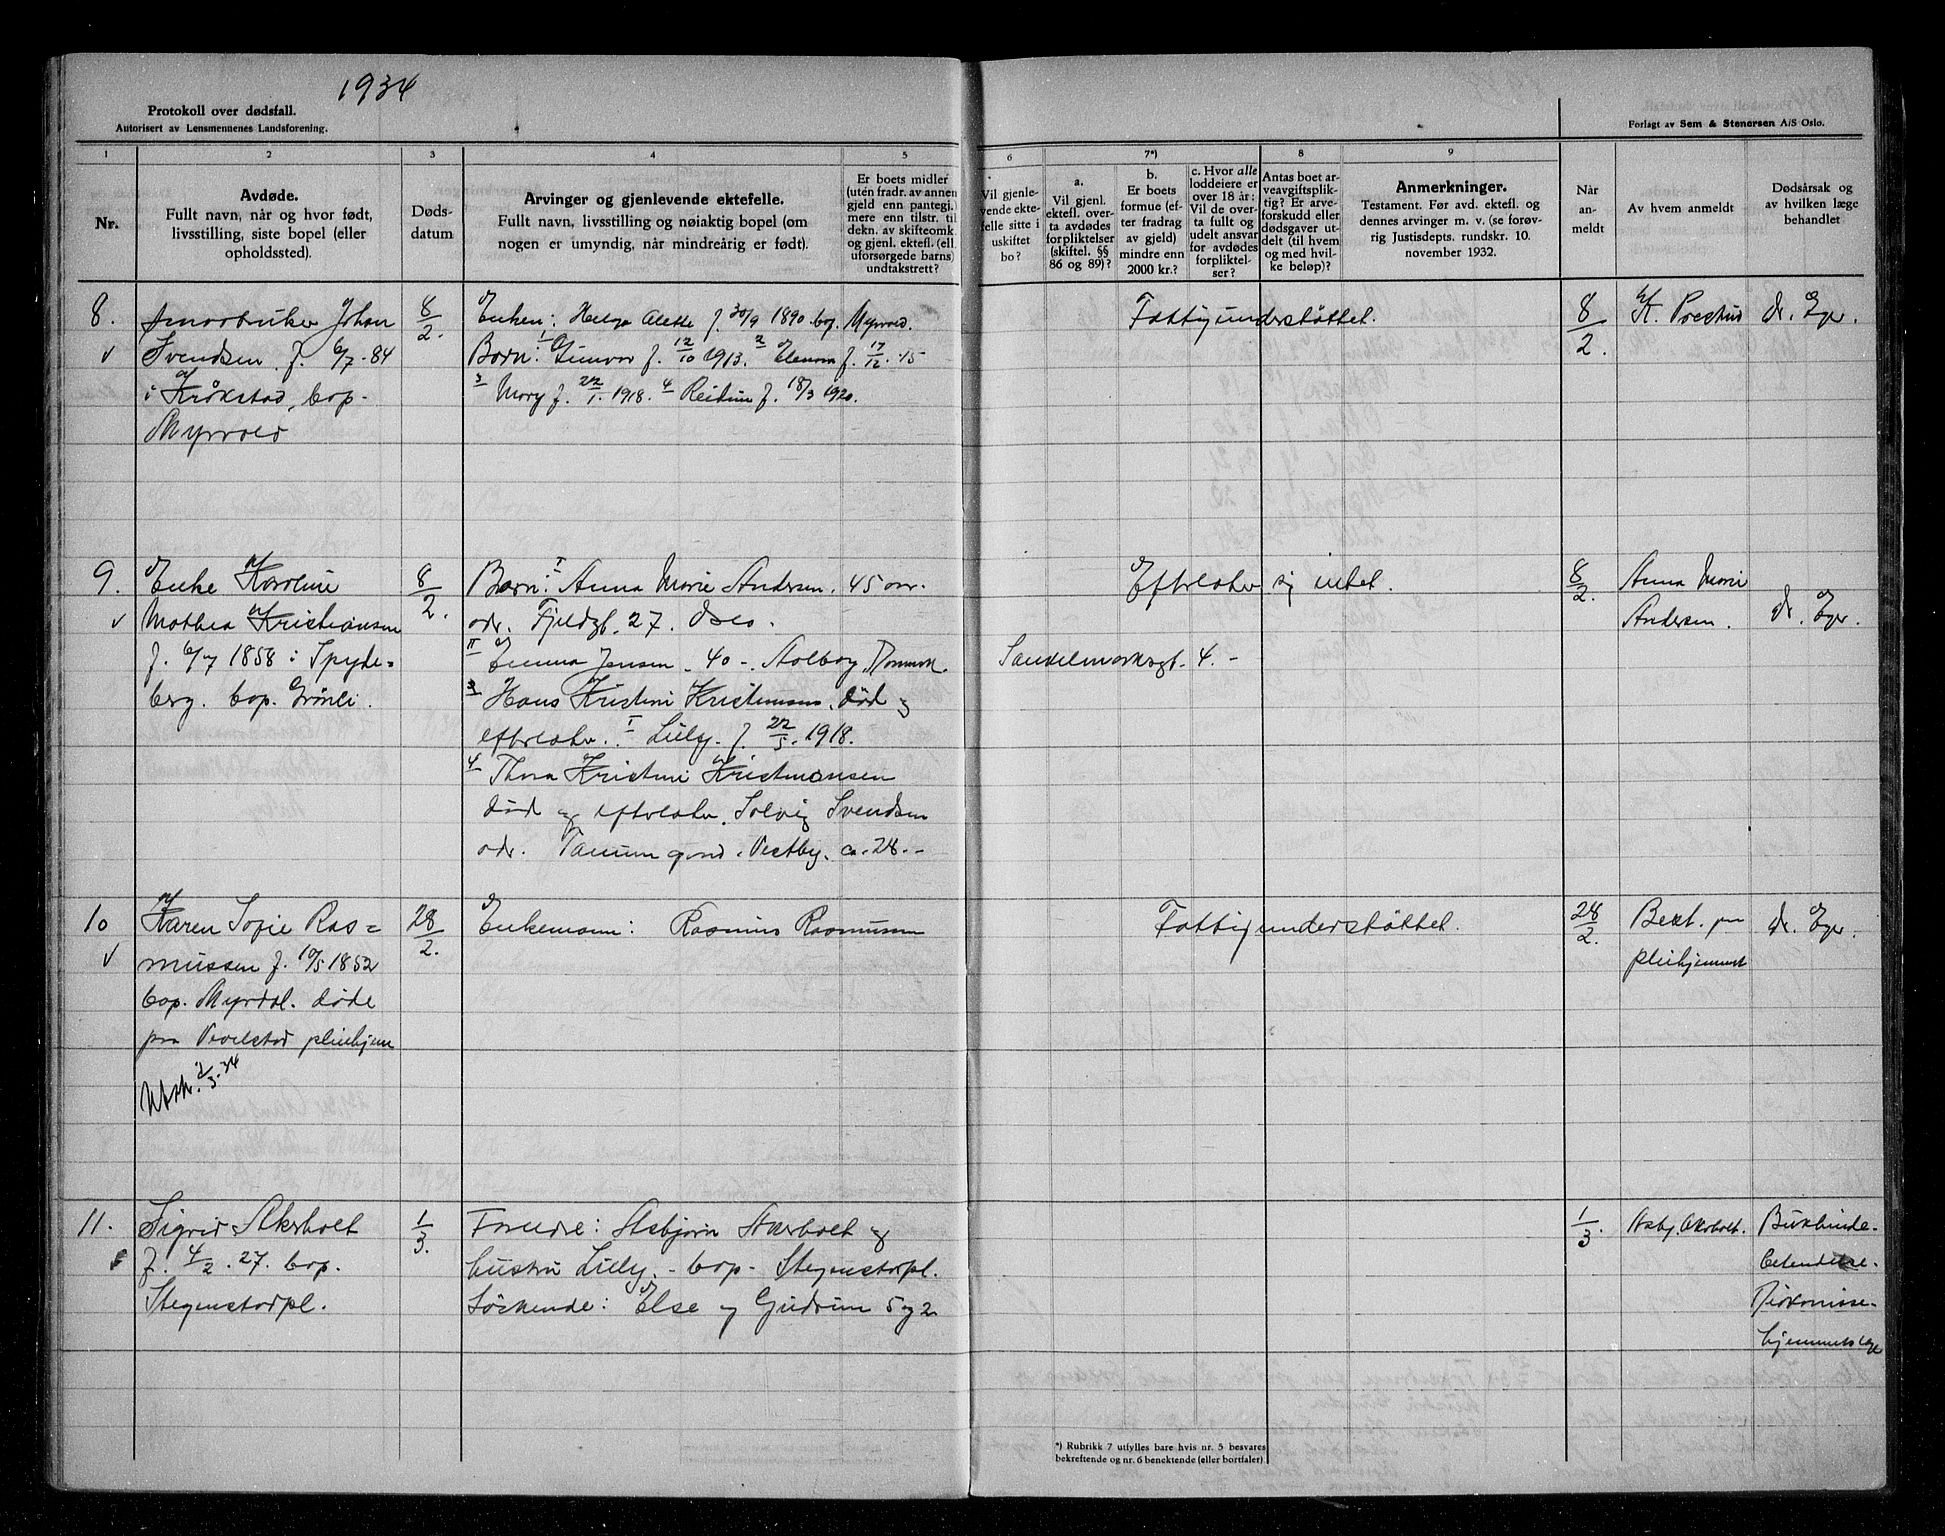 1934
Protokoll over dødsfall.
Autorisert av Lensmennenes Landsforening.
Forlagt av Sem & Stenersen A/S Oslo.
1
2
3
4
5
6
7*)
8
9
Nr.
Avdøde.
Fullt navn, når og hvor født,
livsstilling, siste bopel (eller
opholdssted).
Døds-
datum
Arvinger og gjenlevende ektefelle.
Fullt navn, livsstilling og nøiaktig bopel (om
nogen er umyndig, når mindreårig er født).
Er boets midler
(uten fradr. av annen
gjeld enn pantegj.)
mere enn tilstr. til
dekn. av skifteomk.
og gjenl. ektefl. (ell.
uforsørgede barns)
undtakstrett?
Vil gjenle-
vende ekte-
felle sitte i
uskiftet
bo?
a.
Vil gjenl.
ektefl. over-
ta avdødes
forpliktelser
(skiftel. §§
86 og 89)?
b.
Er boets
formue (ef-
ter fradrag
av gjeld)
mindre enn
2000 kr.?
c. Hvor alle
loddeiere er
over 18 år:
Vil de over-
ta fullt og
udelt ansvar
for avdødes
forpliktel-
ser?
Antas boet ar-
veavgiftsplik-
tig? Er arve-
forskudd eller
dødsgaver ut-
delt (til hvem
og med hvil-
ke beløp)?
Anmerkninger.
Testament. Før avd. ektefl. og
dennes arvinger m. v. (se forøv-
rig Justisdepts. rundskr. 10.
november 1932.
Når
an-
meldt
Av hvem anmeldt
Dødsårsak og
av hvilken læge
behandlet
8.
Smaabruker Johan
Svendsen f. 6/7-84
i Kråkstad, bop.
Myrvold
8/2.
Enken: Helga Alette f. 30/9 1890 bop. Myrvold.
Barn: 1 Gunvor f. 12/10 1913. 2 Elenora f. 17/12.-15-
3 Mary f. 22/1. 1918. 4 Reidun f. 18/3 1920.
Fattigunderstøttet.
8/2.
K.
dr. Eger.
9.
Enke Karoline
Mathea Kristiansen
f. 6/7 1858 i Spyde-
berg. bop. Grønli.
8/2.
Barn: I Anna Marie Andersen. 45 aar.
adr. Fjeldgt. 27. Oslo.
II Emma Jensen - 40 -. Aalborg, Danmark. Sandelmarksgt. 4. -
3 Hans Kristian Kristiansen. død og
efterlater: I Lilly. f. 22/5. 1918.
4 Thora Kristine Kristiansen
død og efterlater. Solvig Svendsen
adr. gaard. Vestby. ca. 28. -
Efterlater sig intet.
8/2.
Anna Marie
Andersen.
dr. Eger.
10
Karen Sofie Ras=
mussen f. 10/5 1852
bop. Myrdal. døde
paa pleiehjem
Utskr. 2/3-34
28/2.
Enkemann: Rasmus Rasmussen
Fattigunderstøttet.
28/2.
Best. paa
pleiehjemmet
dr. Eger.
11.
Sigrid Akerholt
f. 4/2. 27. bop.
Stegenstadpl.
1/3.
Foreldre: Asbjørn Akerholt og
hustru Lilly. - bop - Stegenstadpl.
Søskende: Else og Gudrun 5 og 2
1/3.
Asbj. Akerholt.
Bukhinde-
betendelse.
Diakonisse-
hjemmets læge
*) Rubrikk 7 utfylles bare hvis nr. 5 besvares
bekreftende og nr. 6 benektende (eller bortfaler)